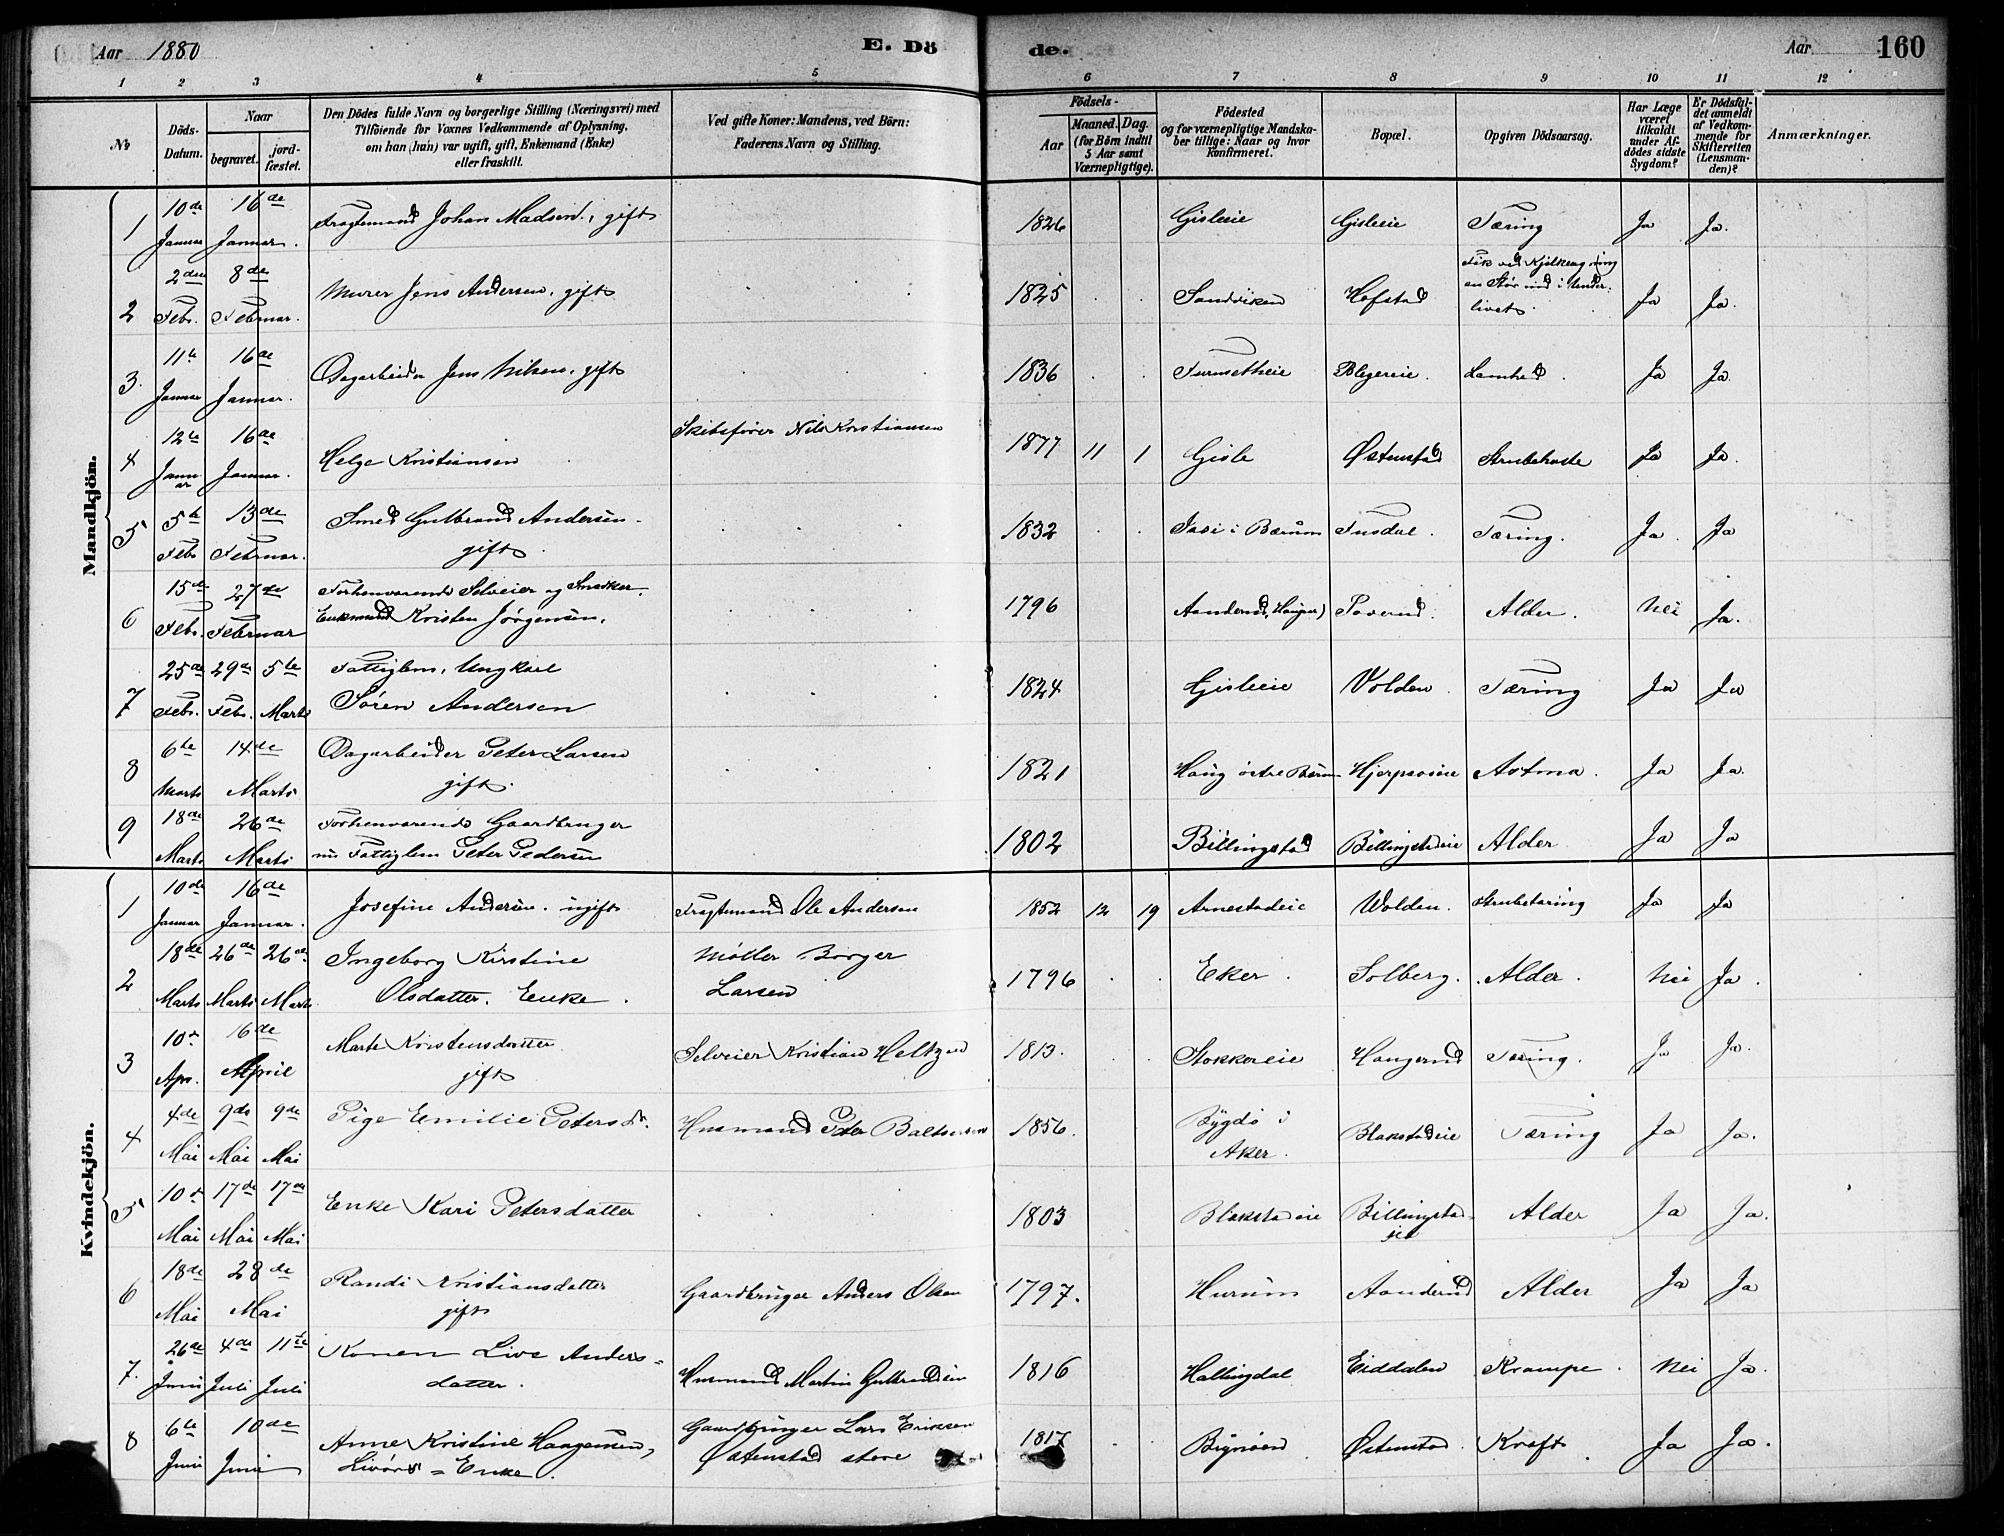 Aar 1880 E. Dö de. Aar 160
1 2 3 4 5 6 7 8 9 10 11 12
No
Döds-Datum.
Naar
begravet.
jord-fæstet.
Den Dödes fulde Navn og borgerlige Stilling (Næringsvei) med
Tilföiende for Voxnes Vedkommende af Oplysning,
om han (hun) var ugift, gift, Enkemand (Enke)
eller fraskilt.
Ved gifte Koner: Mandens, ved Börn:
Faderens Navn og Stilling.
Födsels-
Aar
Maaned. Dag.
(for Börn indtil
5 Aar samt
Værnepligtige).
Födested
og for værnepligtige Mandska-
ber tillige: Naar og hvor
konfirmeret.
Bopæl.
Opgiven Dödsaarsag.
Har Læge
været
tilkaldt
under Af-
dödes sidste
Sygdom?
Er Dödsfal-
det anmeldt
af Vedkom-
mende for
Skifteretten
(Lensman-
den)?
Anmærkninger.
Mandkjön.
1 10de Januar 16de Januar. Fragtemand Johan Madsen, gift 1826 Gisleeie Gisleeie Tæring Ja Ja.
2 2den Febr. 8de Februar. Murer Jens Andersen, gift 1825 Sandviken Hofstad Fik ved Kjelkeagning
en Stør ind i Under-
livet. Ja Ja.
3. 11te Januar 16de Januar. Dagarbeider Jens Nilsen, gift 1836 Blegereie. Ja Ja.
4 12te Januar 16de Januar. Helge Kristiansen Skibsfører Nils Kristiansen 1877 11 1 Gisle Østenstad Strubehoste Ja Ja.
5 5te Febr 13de Februar. Smed Gulbrand Andersen.
gift 1832 i Bærum Tusdal. Tæring. Ja. Ja
6 15de Febr. 27de Februar Forhenværende Selveier og
Enkemand Kristen Jørgensen. 1796 Alder. Nei Ja.
7 25de Febr. 29de Febr. 5te Marts Fattiglem, Ungkarl
Søren Andersen 1824 Gisleeie Volden. Tæring Ja Ja
8 6te Marts 14de Marts Dagarbeider Peter Larsen
gift. 1821 Haug østre Bærum Astma. Ja Ja.
9 18de Marts 26de Marts Forhenværende Gaardbruger
nu Fattiglem Peter Pedersen 1802 Billingstad Billingstadeie Alder Ja Ja
Kvindekjön.
1 10de Januar 16de Januar. Josefine Andersen. ugift Fragtemand Ole Andersen 1852 12 19 Arnestadeie Wolden. Strubetæring Ja Ja
2 18de Marts 26de Marts 26de Marts Ingeborg Kirstine
Olsdatter. Enke. Møller Borger
Larsen 1796 Eker. Solberg. Alder. Nei Ja.
3 10de Apr. 16de April Marte Kristensdatter
gift Selveier Kristian Heltzen 1813. Stokkereie Haugerud Tæring. Ja Ja.
4 4de Mai 9de Mai 9de Mai Pige Emilie Petersdr. Husmand Peter Baltsersen 1856. Bygdø i
Aker. Blakstadeie Tæring Ja Ja.
5 10de Mai 17de Mai 17de Mai Enke Kari Petersdatter 1803 Blakstadeie Billingstad-
eie Alder Ja Ja.
6 18de Mai 28de Mai Randi Kristiansdatter
gift Gaardbruger Anders Olsen 1797. Hurum Aanderud Alder Ja Ja
7. 26de Juni 4de Juli 11te Juli Konen Live Anders-
datter. Husmand Martin Gulbrandsen 1816 Hallingdal Eiddalen Krampe. Nei Ja.
8 6te Juni 10de Juni Anne Kristine Haagensen,
Livørs-Enke. Gaardbruger Lars Eriksen
Østenstad store 1817 Østenstad. Kræft Ja Ja.